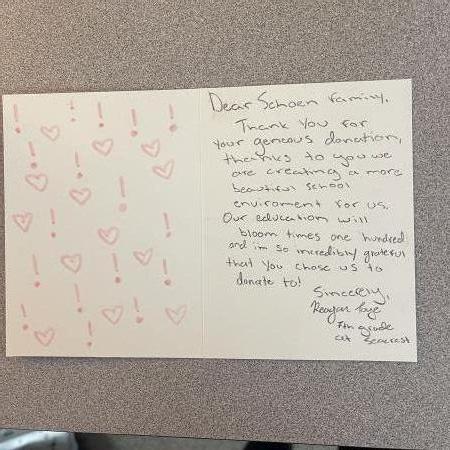 Dear Schoen Family,
Thank you for
your geneous donation,
thanks to you we
are creating a more
beautiful school
enviroment for us.
Our education will
bloom times one hundred
and im so incredibly grateful
that you chose us to
donate to!
Sincerely,
Reagan
7th grade
at Seacrest